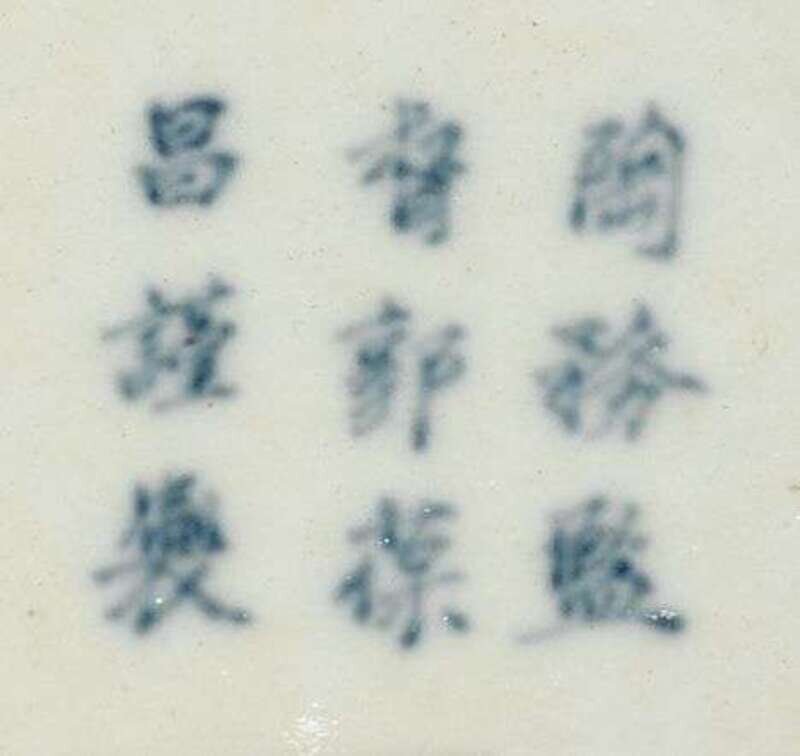 陶務監
督郭葆
昌謹製